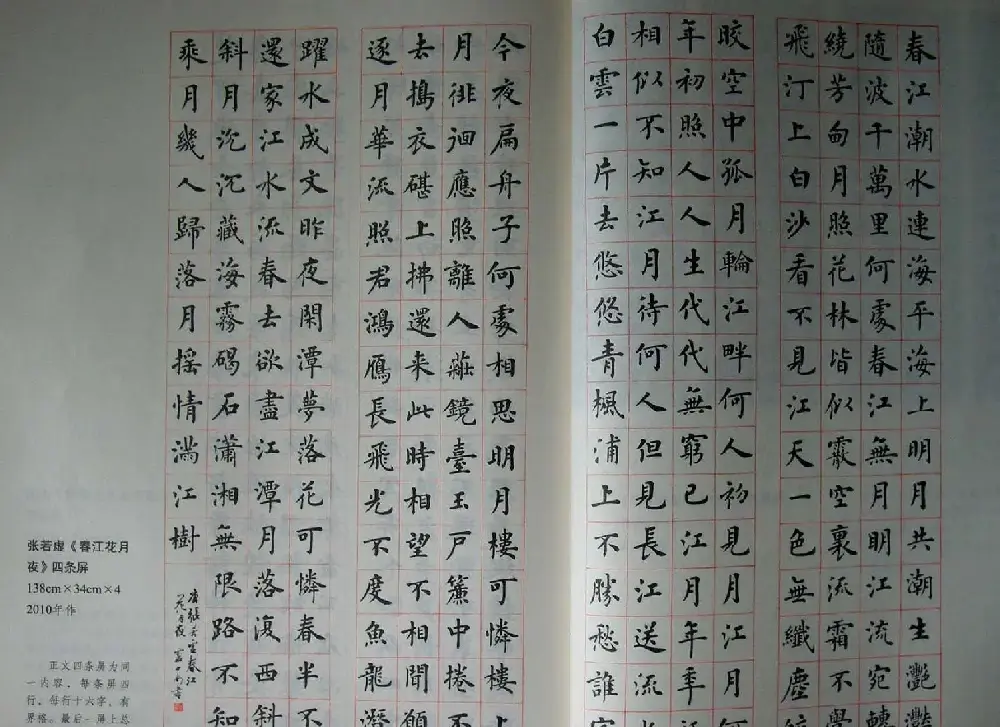 春江潮水連海平海上明月共潮生灩
隨波千萬里何處春江無月明江流宛轉
繞芳甸月照花林皆似霰空裏流霜不覺
飛汀上白沙看不見江天一色無纖塵皎
皎空中孤月輪江畔何人初見月江月何
年初照人人生代代無窮已江月年年
相似不知江月待何人但見長江送流水
白雲一片去悠悠青楓浦上不勝愁誰家
今夜扁舟子何處相思明月樓可憐樓上
月徘徊應照離人莊鏡臺玉戶簾中捲不
去搗衣碪上拂還来此時相望不相聞願
逐月華流照君鴻雁長飛光不度魚龍潛
躍水成文昨夜閑潭夢落花可憐春半不
還家江水流春去欲盡江潭月落復西斜
斜月沉沉藏海霧碣石瀟湘無限路不知
乘月幾人歸落月摇情滿江樹
唐張若虛春江
花月夜
张若虚《春江花月
夜》四条屏
138cm×34cm×4
2010年作
正文四条屏为同
一内容，每条屏四
行，每行十六字，有
界格。最后一屏上总